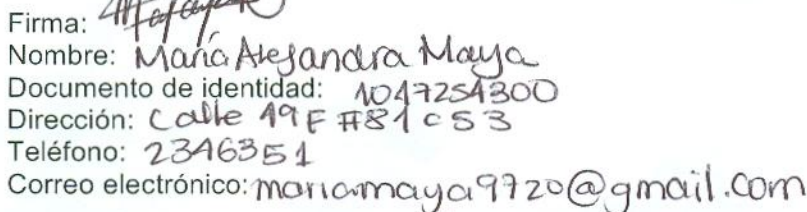 Firma:
Nombre: María Alejandra Maya
Documento de identidad: 1047254300
Dirección: Calle 49F #81c53
Teléfono: 2346351
Correo electrónico: mariamaya9720@gmail.com